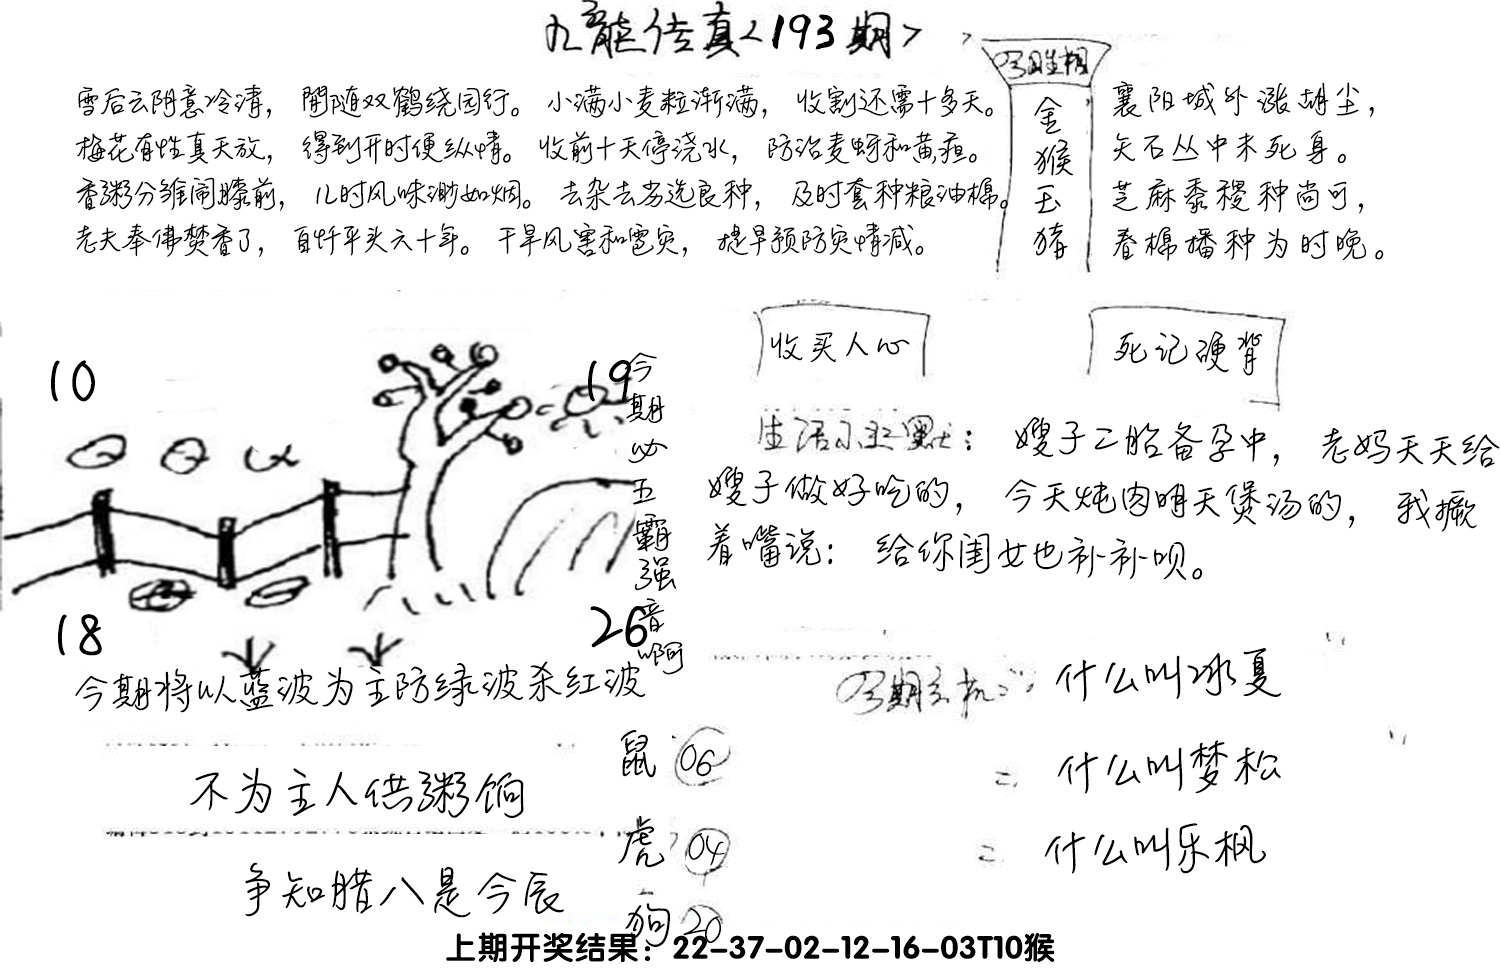 九龙传真<193期>
雪后云阴意冷清，閒随双鹤绕园行。
梅花有性真天放，得到开时便纵情。
香粥分雏闹膝前，儿时风味渺如烟。
老夫奉佛焚香了，自忏平头六十年。
小满小麦粒渐满，收割还需十多天。
收前十天停浇水，防治麦蚜和黄疸。
去杂去劣选良种，及时套种粮油棉。
干旱风害和雹灾，提早预防灾情减。
金
猴
玉
猪
襄阳城外涨胡尘，
矢石丛中未死身。
芝麻黍稷种尚可，
春棉播种为时晚。
10
19
18
26
今期必五霸强音啊
收买人心
死记硬背
嫂子二胎备孕中，老妈天天给
嫂子做好吃的，今天炖肉明天煲汤的，我撅
着嘴说：给你闺女也补补呗。
今期将以蓝波为主防绿波杀红波
不为主人供粥饷
争知腊八是今辰
鼠 06
虎 04
狗 20
什么叫冰夏
什么叫梦松
什么叫乐枫
上期开奖结果：22-37-02-12-16-03T10猴